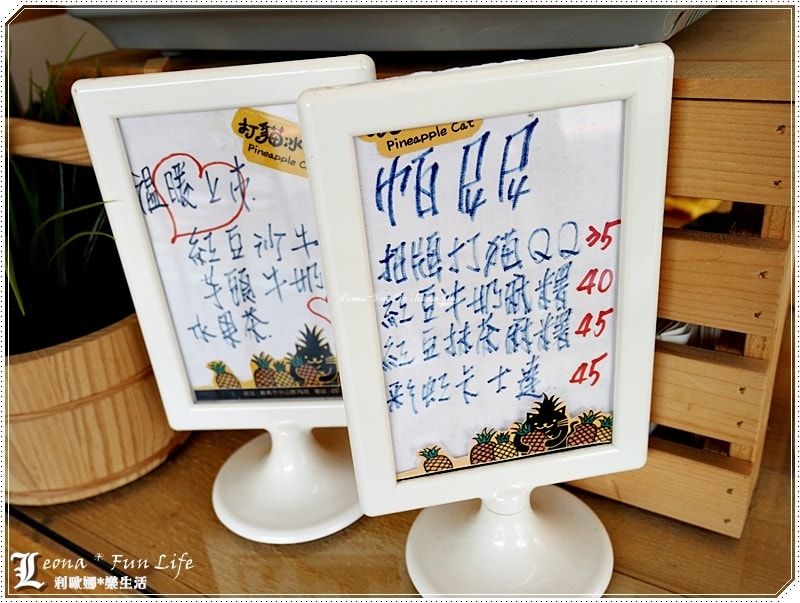 打貓冰
Pineapple C
溫暖上市
紅豆沙牛
芋頭牛奶
水果茶
Pineapple Cat
招牌打貓QQ 35
紅豆牛奶麻糬 40
紅豆抹茶麻糬 45
彩虹卡士達 45
Leona * Fun Life
利歐娜*樂生活